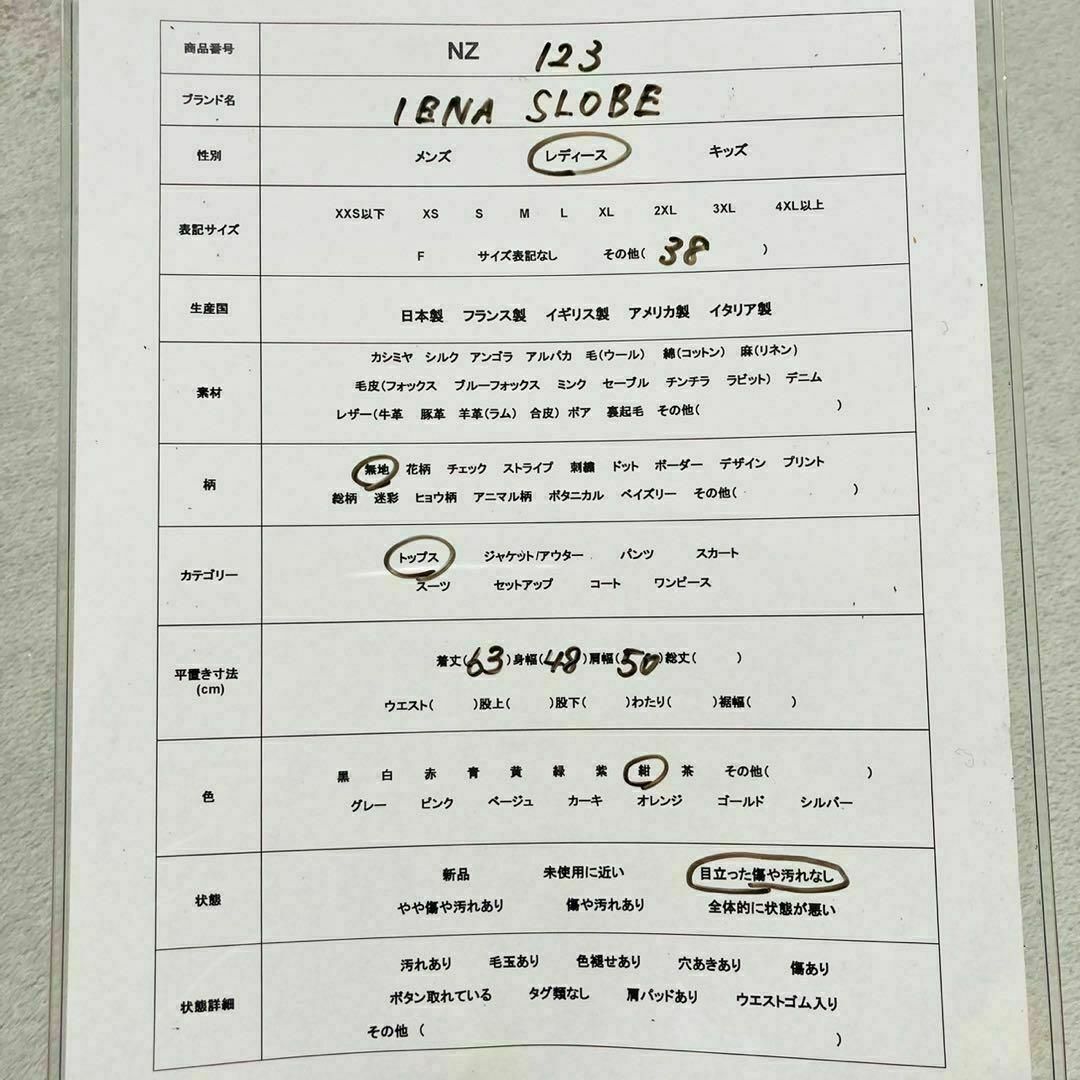 商品番号 NZ 123
ブランド名 IENA SLOBE
性別 メンズ レディース キッズ
表記サイズ
XXS以下 XS S M L XL 2XL 3XL 4XL以上
F サイズ表記なし その他( 38 )
生産国 日本製 フランス製 イギリス製 アメリカ製 イタリア製
素材
カシミヤ シルク アンゴラ アルパカ 毛(ウール) 綿(コットン) 麻(リネン)
毛皮(フォックス ブルーフォックス ミンク セーブル チンチラ ラビット) デニム
レザー(牛革 豚革 羊革(ラム) 合皮) ボア 裏起毛 その他( )
柄
無地 花柄 チェック ストライプ 刺繍 ドット ボーダー デザイン プリント
総柄 迷彩 ヒョウ柄 アニマル柄 ボタニカル ペイズリー その他( )
カテゴリー
トップス ジャケット/アウター パンツ スカート
スーツ セットアップ コート ワンピース
平置き寸法
(cm)
着丈(63)身幅(48)肩幅(50)総丈( )
ウエスト( )股上( )股下( )わたり( )裾幅( )
色
黒 白 赤 青 黄 緑 紫 紺 茶 その他( )
グレー ピンク ベージュ カーキ オレンジ ゴールド シルバー
状態
新品 未使用に近い 目立った傷や汚れなし
やや傷や汚れあり 傷や汚れあり 全体的に状態が悪い
状態詳細
汚れあり 毛玉あり 色褪せあり 穴あきあり 傷あり
ボタン取れている タグ類なし 肩パッドあり ウエストゴム入り
その他 ( )